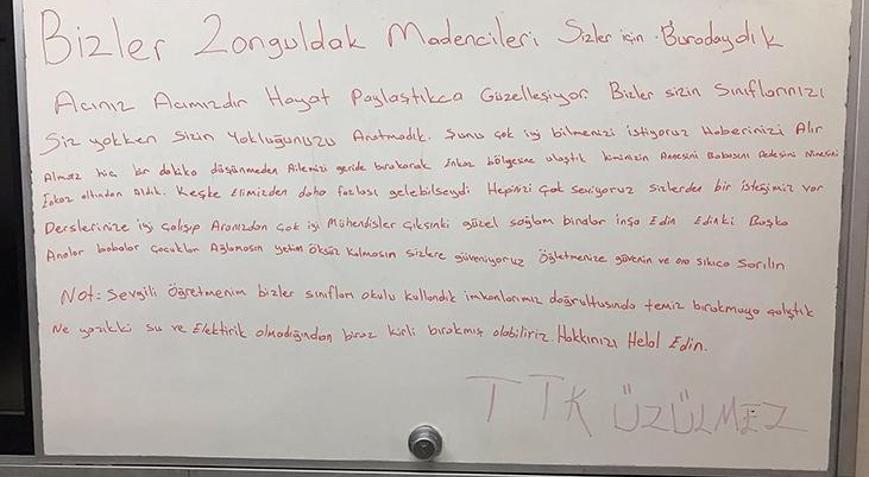 Bizler Zonguldak Madencileri Sizler için Buradaydık
Acınız Acımızdır Hayat Paylaştıkca Güzelleşiyor Bizler sizin Sınıflarınızı
Siz yokken Sizin Yokluğunuzu Aratmadık. Şunu çok iyi bilmenizi istiyoruz Haberinizi Alır
Almaz hiç bir dakika düşünmeden Ailemizi geride bırakarak Enkaz bölgesine ulaştık kiminizin Annesini Babasını Dedesini Ninesini
Enkaz altından Aldık. Keşke Elimizden daha fazlası gelebilseydi Hepinizi çok seviyoruz sizlerden bir isteğimiz var
Derslerinize iyi çalışıp Aranızdan çok iyi Mühendisler çıksınki güzel sağlam binalar inşa Edin Edinki Başka
Analar babalar Çocuklar Ağlamasın yetim öksüz kalmasın sizlere güveniyoruz Öğretmenize güvenin ve ona sıkıca Sarılın
Not: Sevgili Öğretmenim bizler sınıfları okulu kullandık imkanlarımız doğrultusunda temiz bırakmaya çalıştık
Ne yazıkki su ve Elektirik olmadığından biraz kirli bırakmış olabiliriz. Hakkınızı Helal Edin.
TTK ÜZÜLMEZ